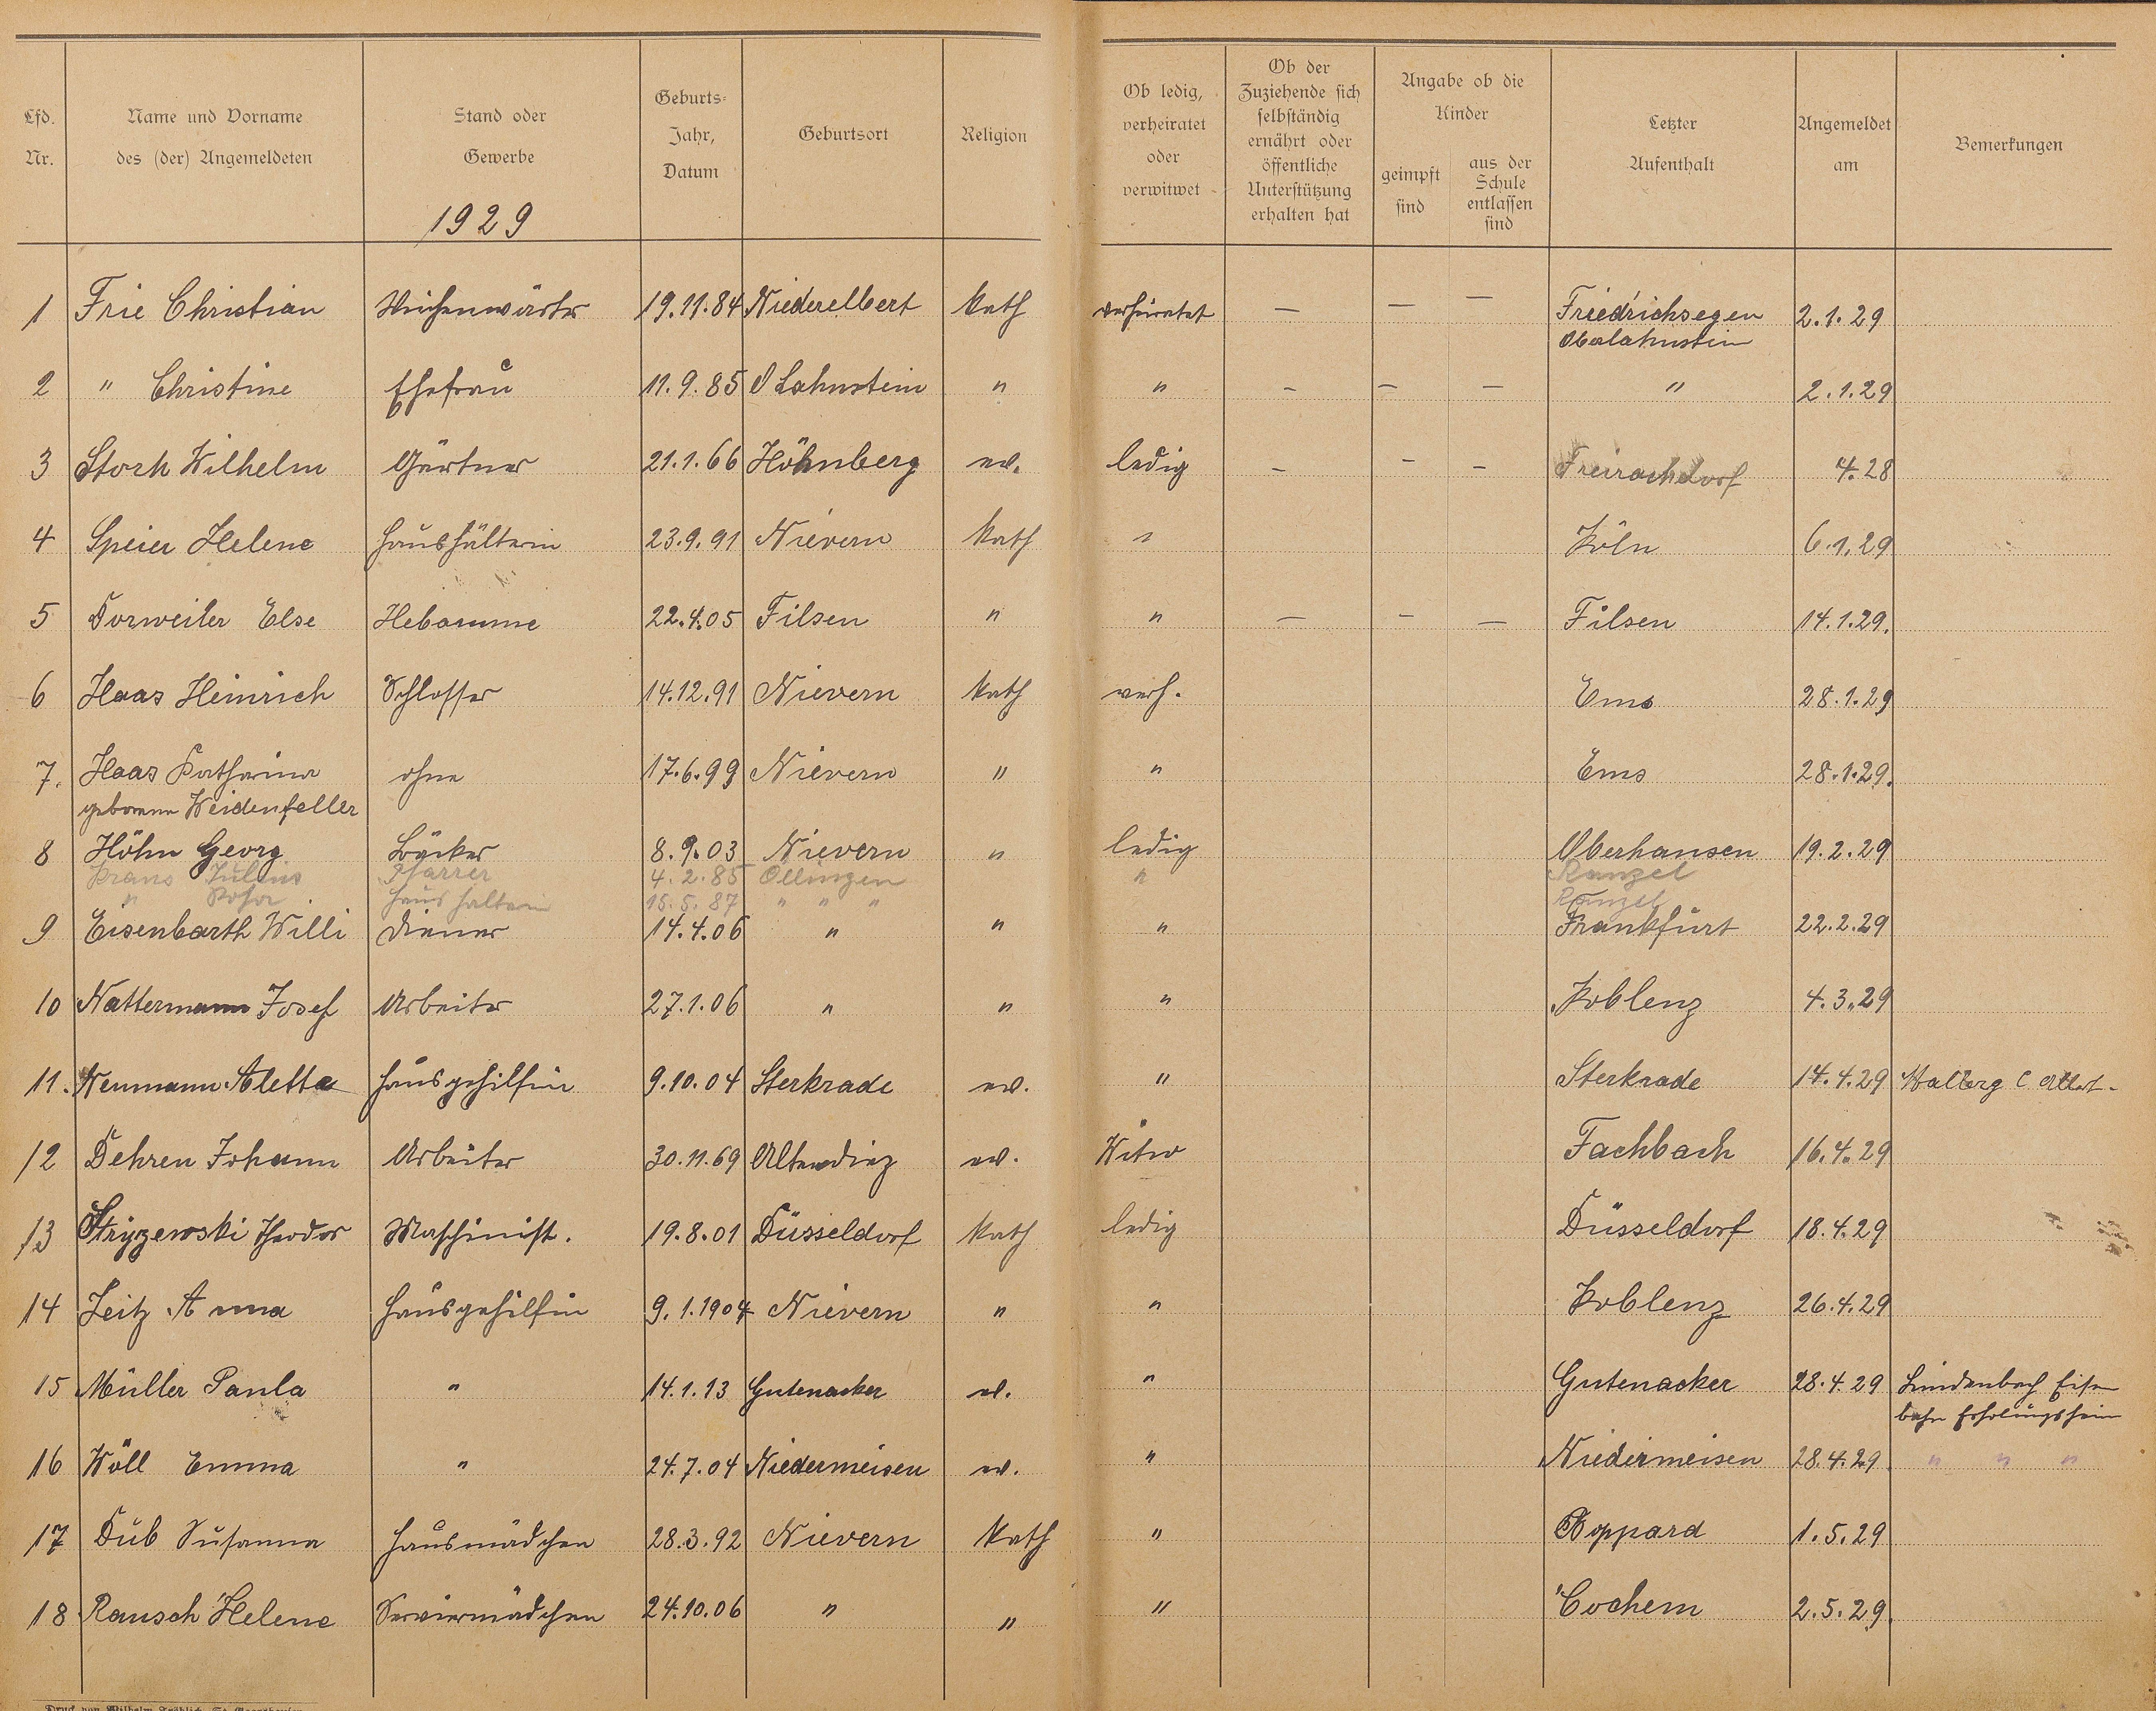 Lfd. Nr.
Name und Vorname des (der) Angemeldeten
Stand oder Gewerbe
Geburts- Jahr, Datum
Geburtsort
Religion
Ob ledig, verheiratet oder verwitwet
Ob der Zuziehende sich selbständig ernährt oder öffentliche Unterstützung erhalten hat
Angabe ob die Kinder
geimpft sind
aus der Schule entlassen sind
Letzter Aufenthalt
Angemeldet am
Bemerkungen
1929
1 Frie Christian Weichenwärter 19.11.84 Niederelbert Kath verheiratet — — — Friedrichsegen 2.1.29
Oberlahnstein
2 " Christine Ehefrau 11.9.85 O Lahnstein " " — — — " 2.1.29
3 Storh Wilhelm Gärtner 21.1.66 Höhnberg ev. ledig — — — Freirachdorf 4.28
4 Speier Helene Haushälterin 23.9.91 Nievern Kath " Köln 6.1.29
5 Dorweiler Else Hebamme 22.4.05 Filsen " " — — — Filsen 14.1.29.
6 Haas Heinrich Schlosser 14.12.91 Nievern Kath verh. Ems 28.1.29
7. Haas Katharina ohne 17.6.99 Nievern " " Ems 28.1.29.
geborene Weidenfeller
8 Höhn Georg Bäcker 8.9.03 Nievern " ledig Oberhausen 19.2.29
Krans Julius Pfarrer 4.2.85 Ollingen " Ranzel
" Rosa Haushälterin 15.5.87 " " " Ranzel
9 Eisenbarth Willi Diener 14.4.06 " " " Frankfurt 22.2.29
10 Nattermann Josef Arbeiter 27.1.06 " " " Koblenz 4.3.29
11. Neumann Aletta Hausgehilfin 9.10.04 Sterkrade ev. " Sterkrade 14.4.29
12 Dehren Johann Arbeiter 30.11.69 Altendiez ev. Witw Fachbach 16.4.29
13 Stryzewski Theodor Maschinist. 19.8.01 Düsseldorf Kath ledig Düsseldorf 18.4.29
14 Zeitz Anna Hausgehilfin 9.1.1904 Nievern " " Koblenz 26.4.29
15 Müller Paula " 14.1.13 Gutenacker ev. " Gutenacker 28.4.29 Lindenbach Eisen
bahn Erholungsheim
16 Wöll Emma " 24.7.04 Niedermeisen ev. " Niedermeisen 28.4.29 " " "
17 Düb Susanna Hausmädchen 28.3.92 Nievern Kath " Boppard 1.5.29
18 Rausch Helene Serviermädchen 24.10.06 " " " Cochem 2.5.29.